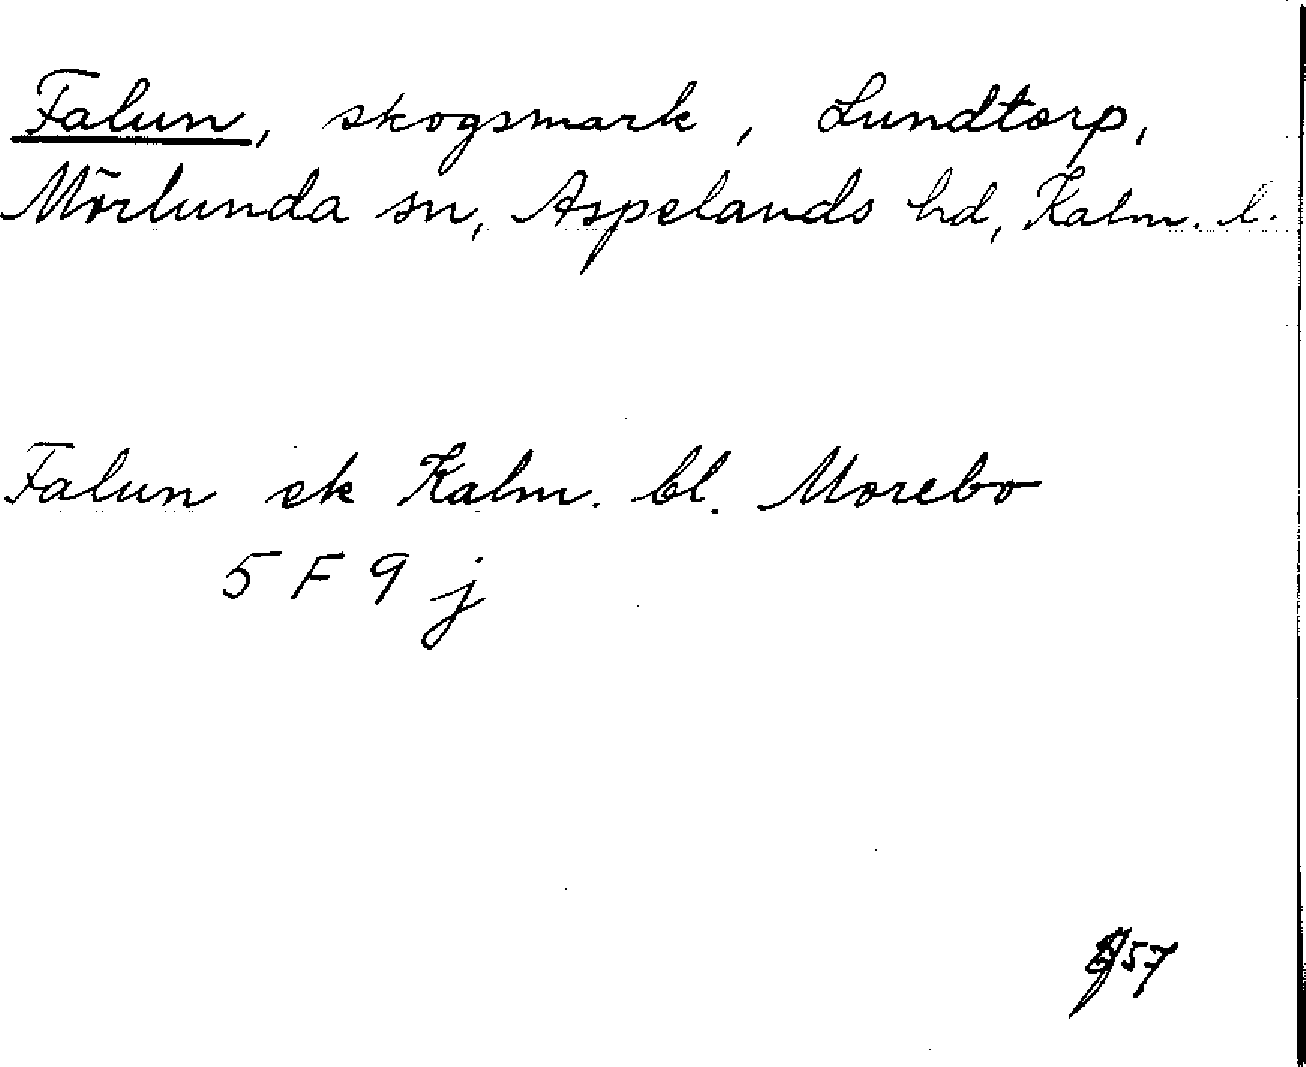 Falun, skogsmark, Lundtorp,
Mörlunda sn, Aspelands hd, Kalm. l.
Falun ek Kalm. bl. Morebo
5 F 9 j
57